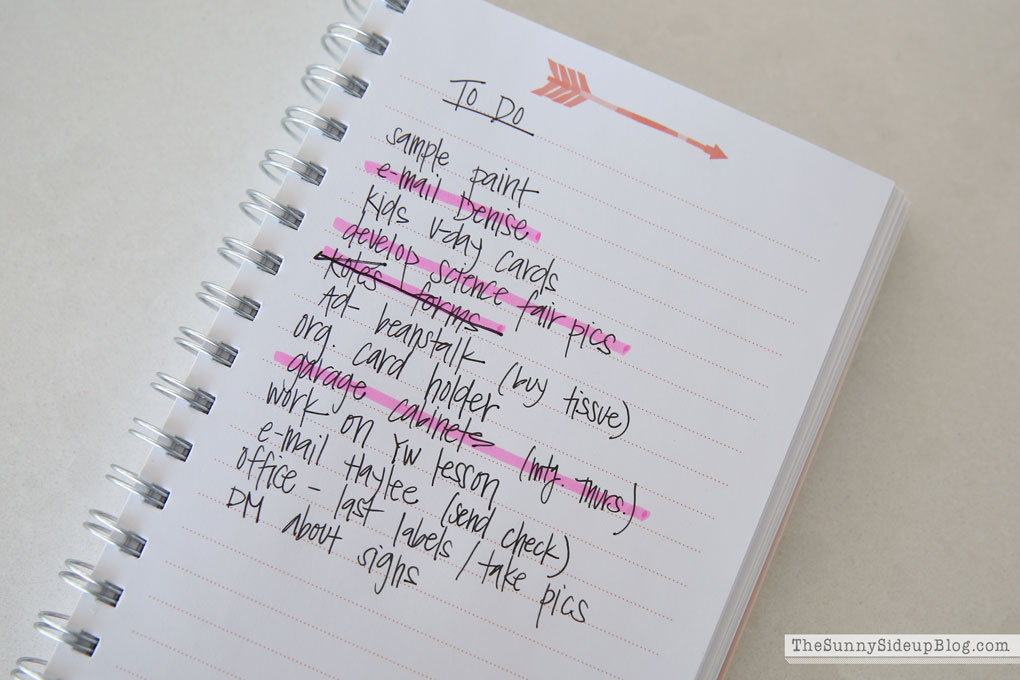 To Do
sample paint
e-mail Denise
kids v-day cards
develop science fair pics
Kates forms
Ad- beanstalk (buy tissue)
org. card holder
garage cabinets (mtg. Thurs.)
work on YW lesson
e-mail Haylee (send check)
office - last labels / take pics
DM about signs
TheSunnySideupBlog.com